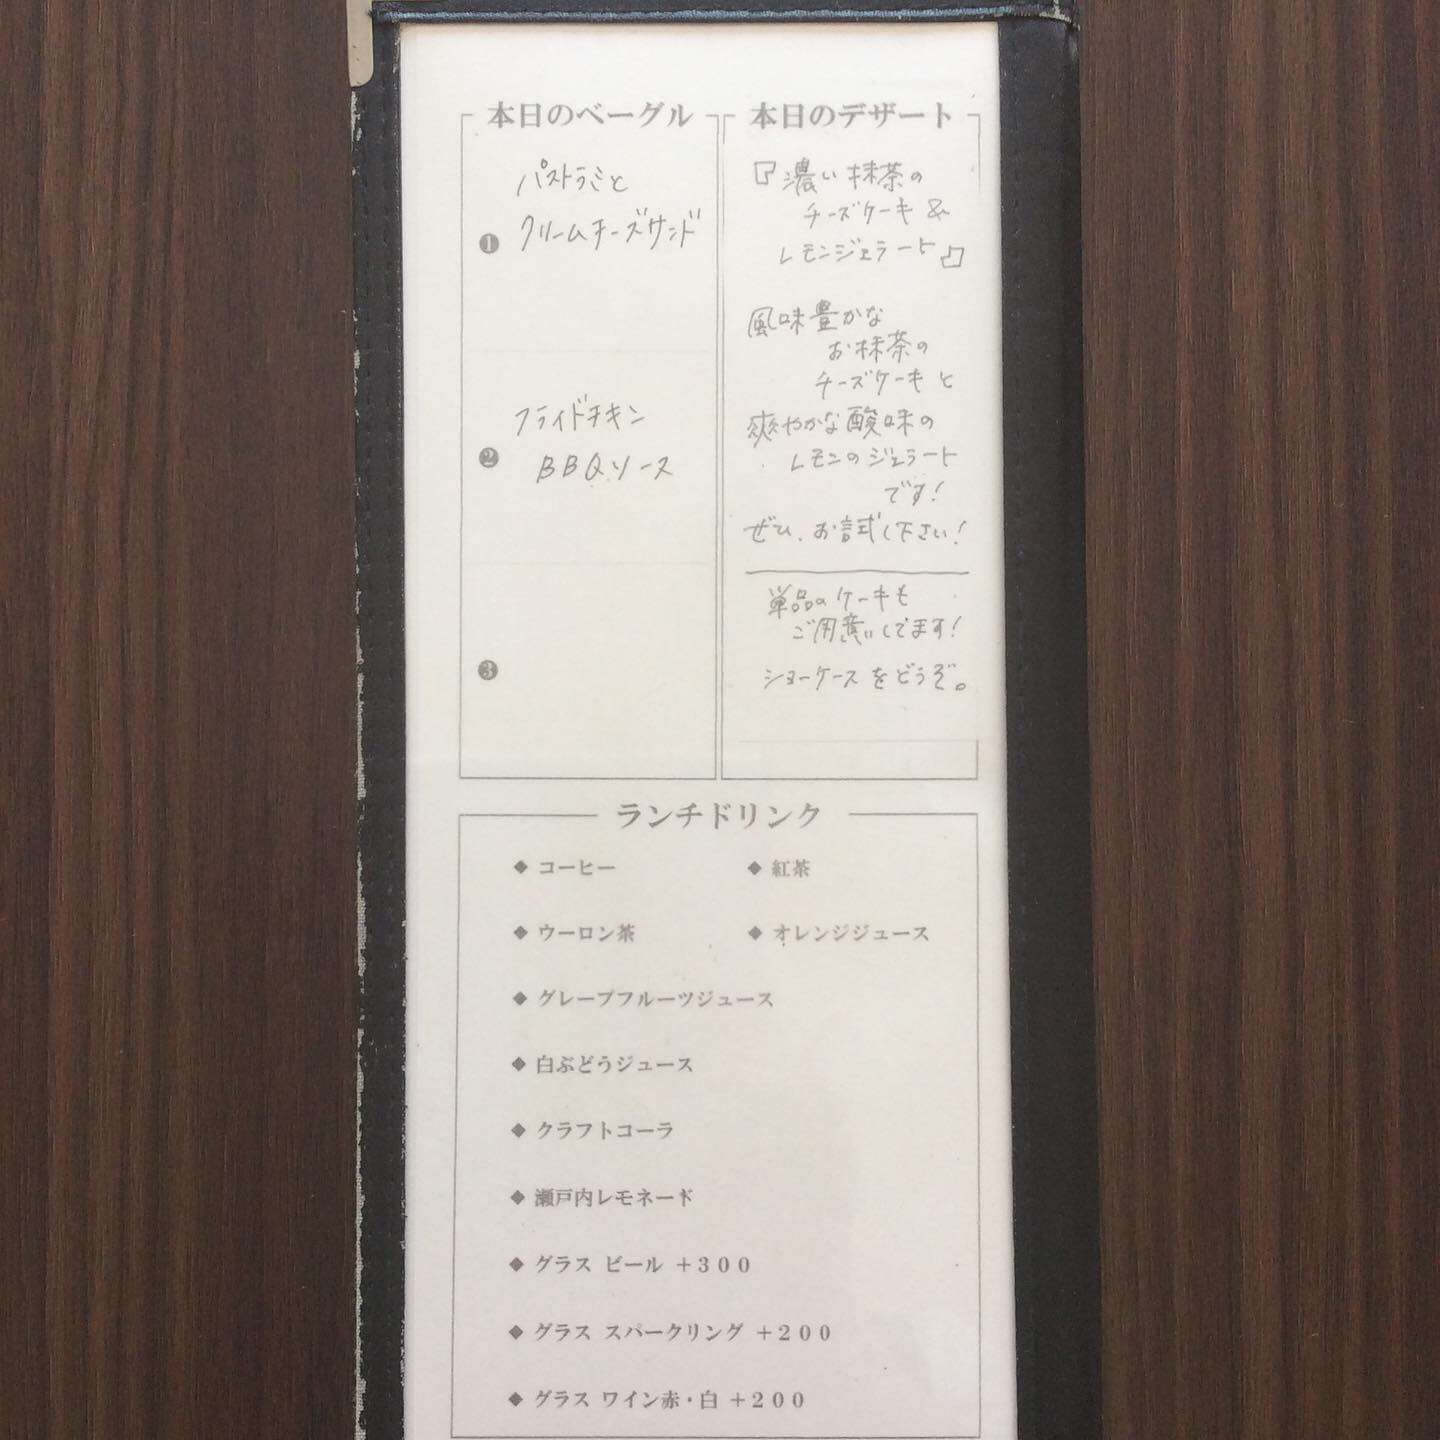 本日のベーグル
パストラミと
❶ クリームチーズサンド
フライドチキン
❷ BBQソース
❸
本日のデザート
『濃い抹茶の
チーズケーキ&
レモンジェラート』
風味豊かな
お抹茶の
チーズケーキと
爽やかな酸味の
レモンのジェラート
です!
ぜひ、お試し下さい!
単品のケーキも
ご用意してます!
ショーケースをどうぞ。
ランチドリンク
◆ コーヒー ◆ 紅茶
◆ ウーロン茶 ◆ オレンジジュース
◆ グレープフルーツジュース
◆ 白ぶどうジュース
◆ クラフトコーラ
◆ 瀬戸内レモネード
◆ グラス ビール +300
◆ グラス スパークリング +200
◆ グラス ワイン赤・白 +200